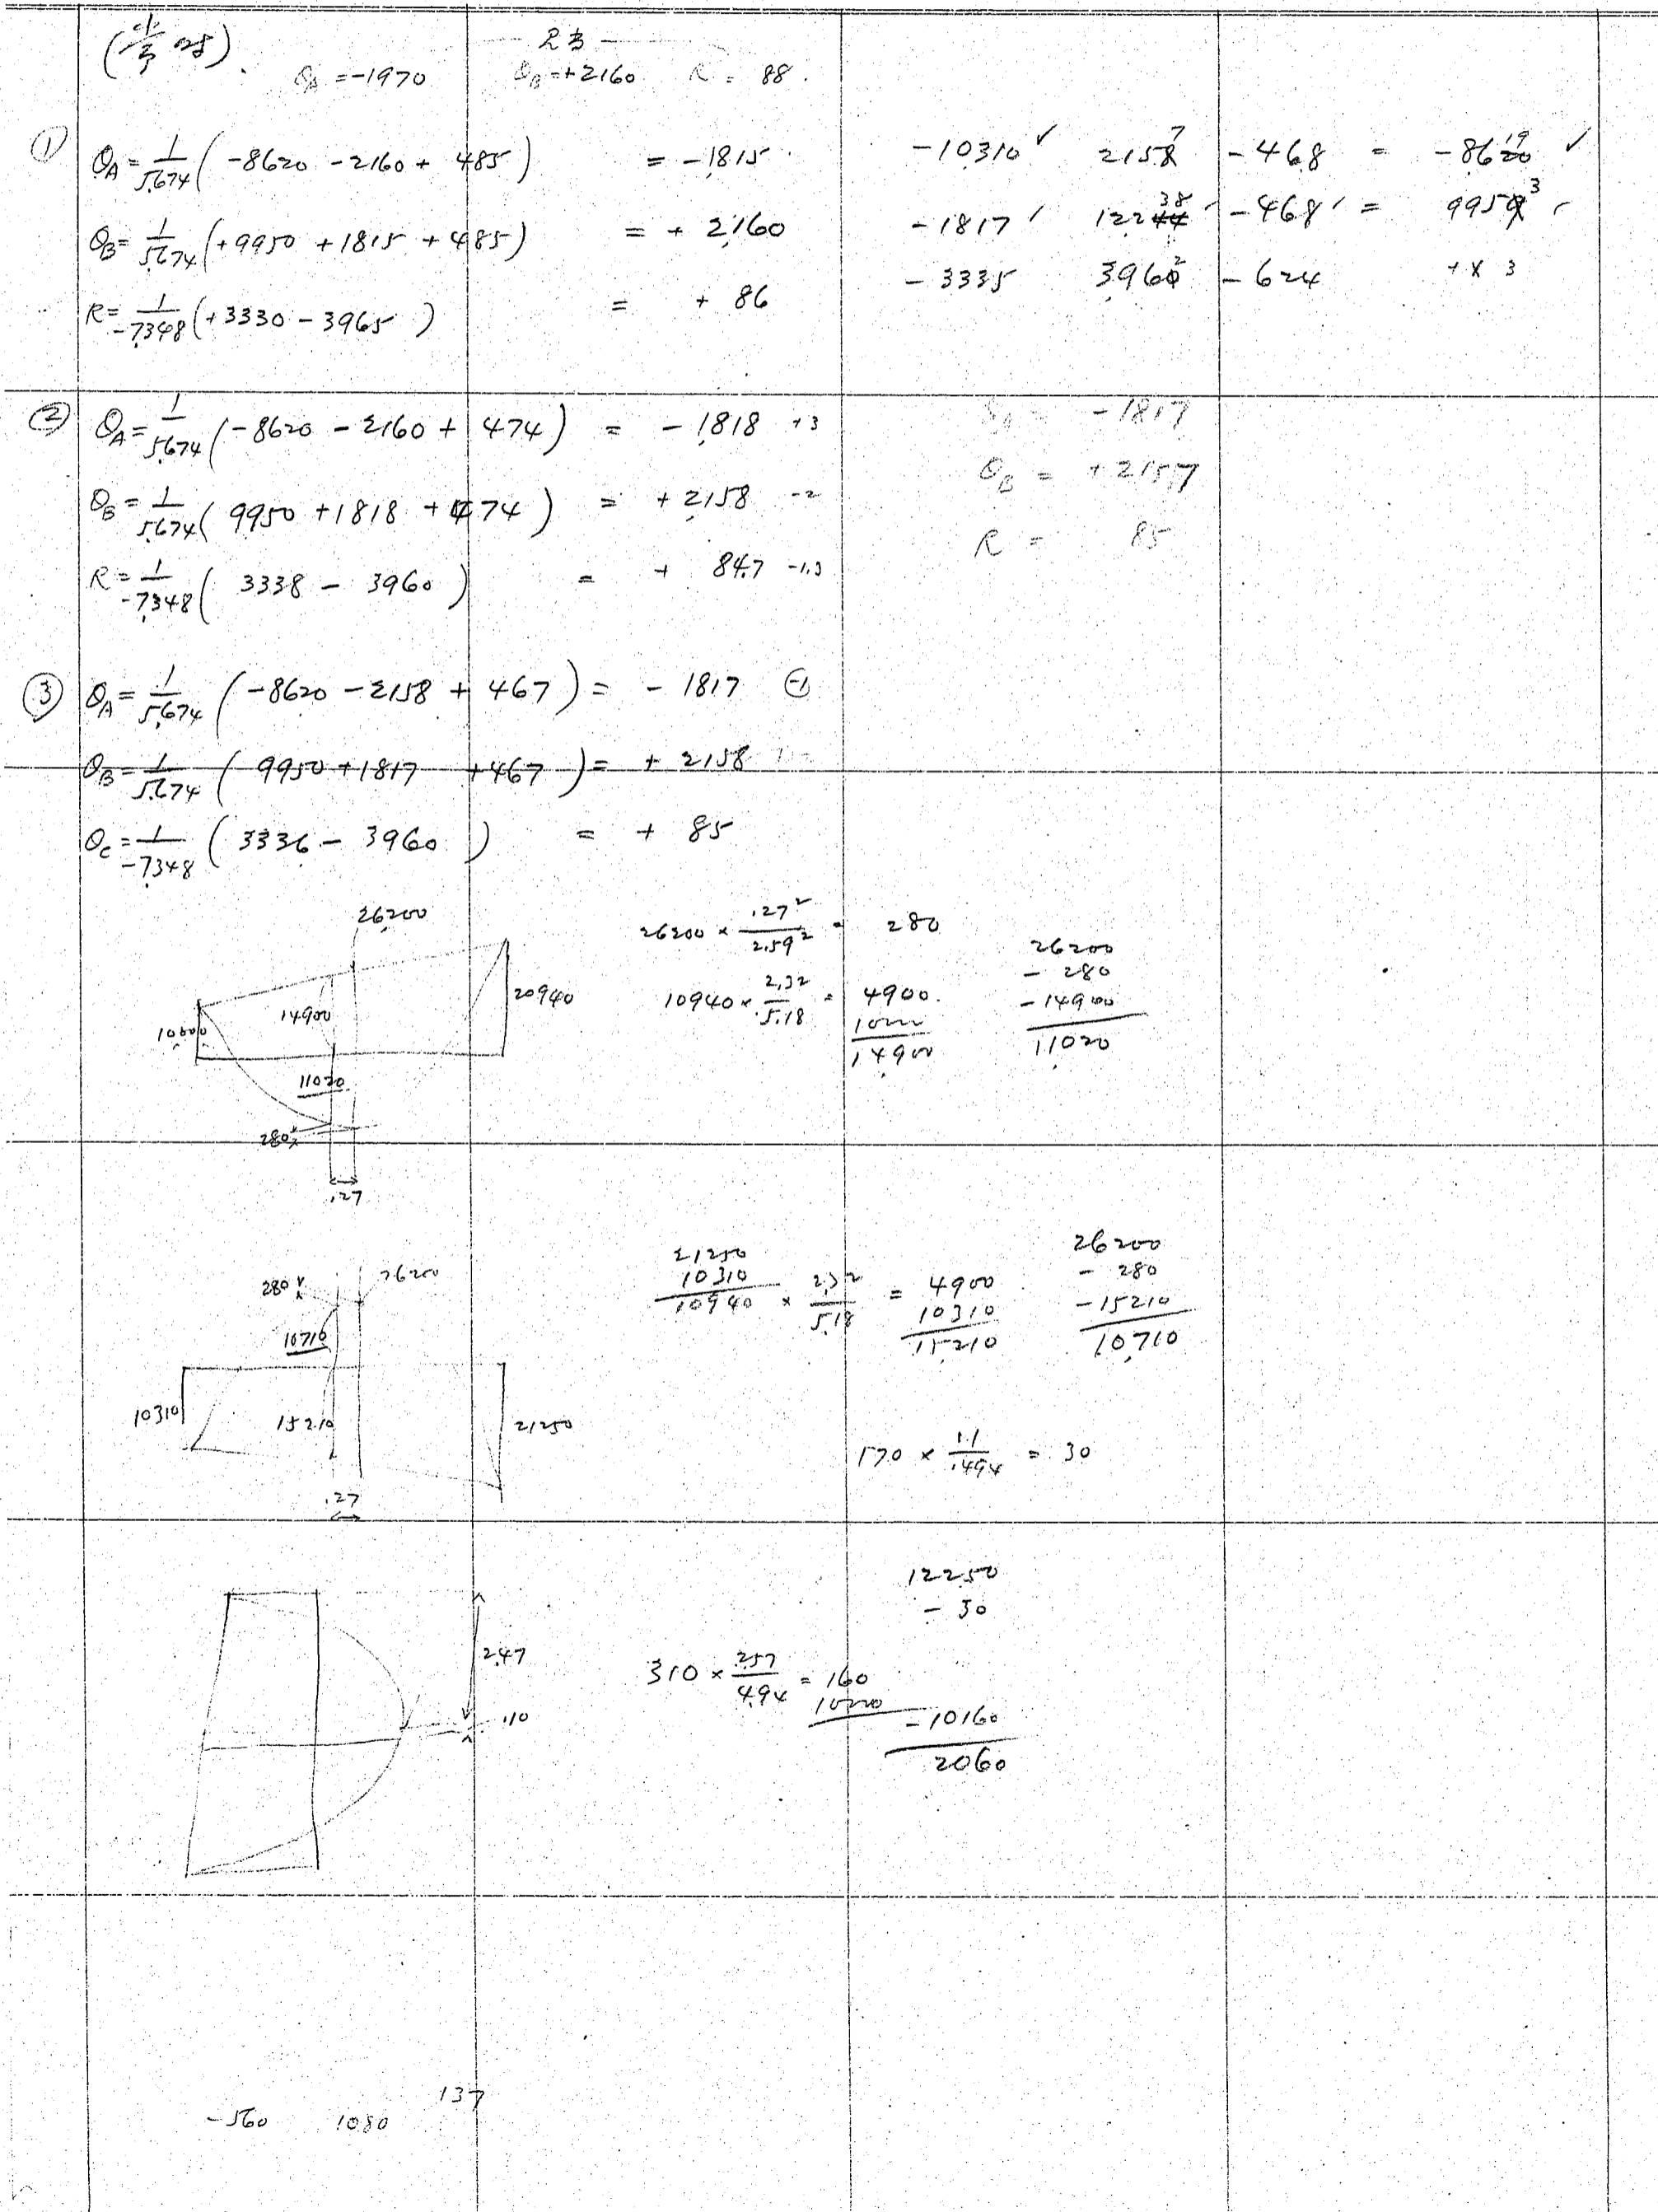 θA = -1970 θB = +2160 R = 88
① θA = 1/5.674 ( -8620 - 2160 + 485 ) = -1815
θB = 1/5.674 ( +9950 + 1815 + 485 ) = + 2160
R = 1/-7.348 ( +3330 - 3965 ) = + 86
-10310 ✓ 2158 7 -468 = -8620 19 ✓
-1817 12244 38 -468 = 9959 3
-3335 3960 2 -624 + x 3
② θA = 1/5.674 ( -8620 - 2160 + 474 ) = - 1818 +3
θB = 1/5.674 ( 9950 + 1818 + 474 ) = + 2158 -2
R = 1/-7.348 ( 3338 - 3960 ) = + 84.7 -1.3
θA = -1817
θB = +2157
R = 85
③ θA = 1/5.674 ( -8620 - 2158 + 467 ) = - 1817 -1
θB = 1/5.674 ( 9950 + 1817 + 467 ) = + 2158
θc = 1/-7.348 ( 3336 - 3960 ) = + 85
26200
10000
14900
20940
11020
280
.27
26200 × .27²/2.59² = 280
10940 × 2.32/5.18 = 4900
10000
14900
26200
- 280
-14900
11020
280
26200
10710
10310
15210
21250
.27
21250
10310
10940 × 2.32/5.18 = 4900
10310
15210
26200
- 280
-15210
10,710
170 × 1.1/.494 = 30
2.47
.10
12250
- 30
310 × 2.57/4.94 = 160
10000
-10160
2060
137
-560 1080